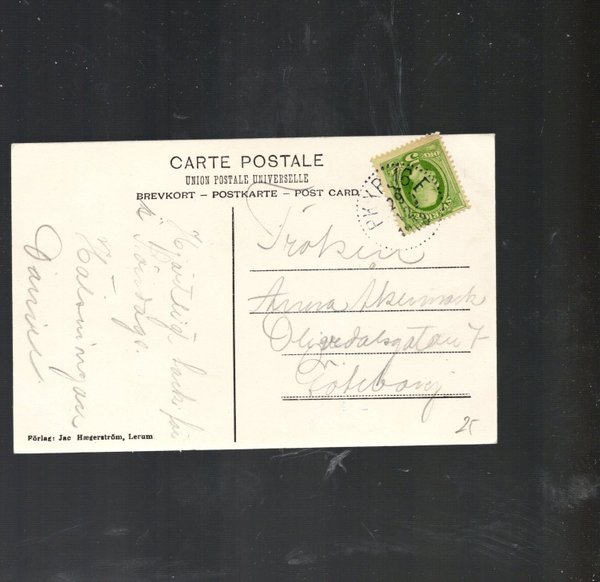 CARTE POSTALE
UNION POSTALE UNIVERSELLE
BREVKORT – POSTKARTE – POST CARD.
Hjärtligt tack för
Hälsningar
Fröken
Anna Åkermark
Olivedalsgatan 7
Göteborg
25
Förlag: Jac Hægerström, Lerum